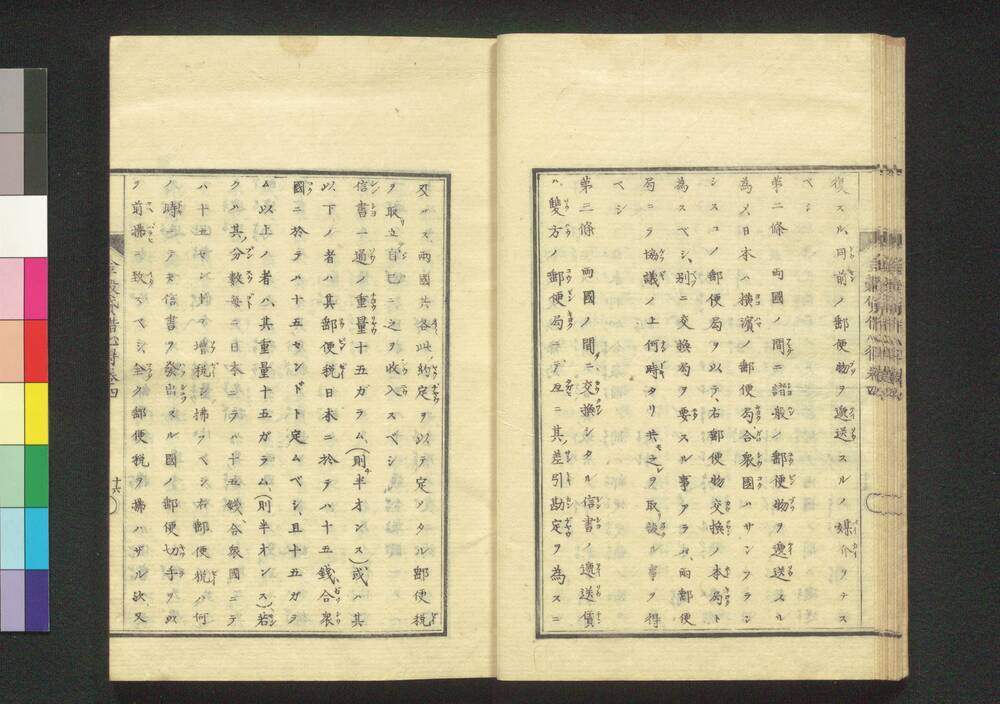 復スル、同前ノ郵便物ヲ遞送スルノ媒介ヲナス
ベシ
第二條 両國ノ間ニ諸般ノ郵便物ヲ遞送スル
為メ、日本ハ横濱ノ郵便局、合衆國ハサンフラン
シスコノ郵便局ヲ以テ、右郵便物交換ノ本局ト
為スベシ、別ニ交換局ヲ要スル事アラバ、両郵便
局ニテ協議ノ上何時タリ共之ヲ取設ル事ヲ得
ベシ
第三條 両國ノ間ニ交換シタル信書ノ遞送賃
ハ、雙方ノ郵便局ニテ互ニ其差引勘定ヲ為スニ
及バス、両國共各此約定ヲ以テ定メタル郵便税
ヲ取立自己ニ之ヲ收入スベシ
信書一通ノ重量十五ガラム、(則半オンス)或ハ其
以下ノ者ハ其郵便税日本ニ於テハ十五錢、合衆
國ニ於テハ十五セントト定ムベシ、且十五ガラ
ム以上ノ者ハ、其重量十五ガラム、(則半オンス)若
クハ其分數毎ニ日本ニテハ十五錢、合衆國ニテ
ハ十五セントノ増税ヲ拂フベシ、右郵便税ハ何
ノ時ニテモ信書ヲ發出スル國ノ郵便切手ヲ以
テ前拂ヲ致スベシ、全ク郵便税ヲ拂ハザル欤又
十六